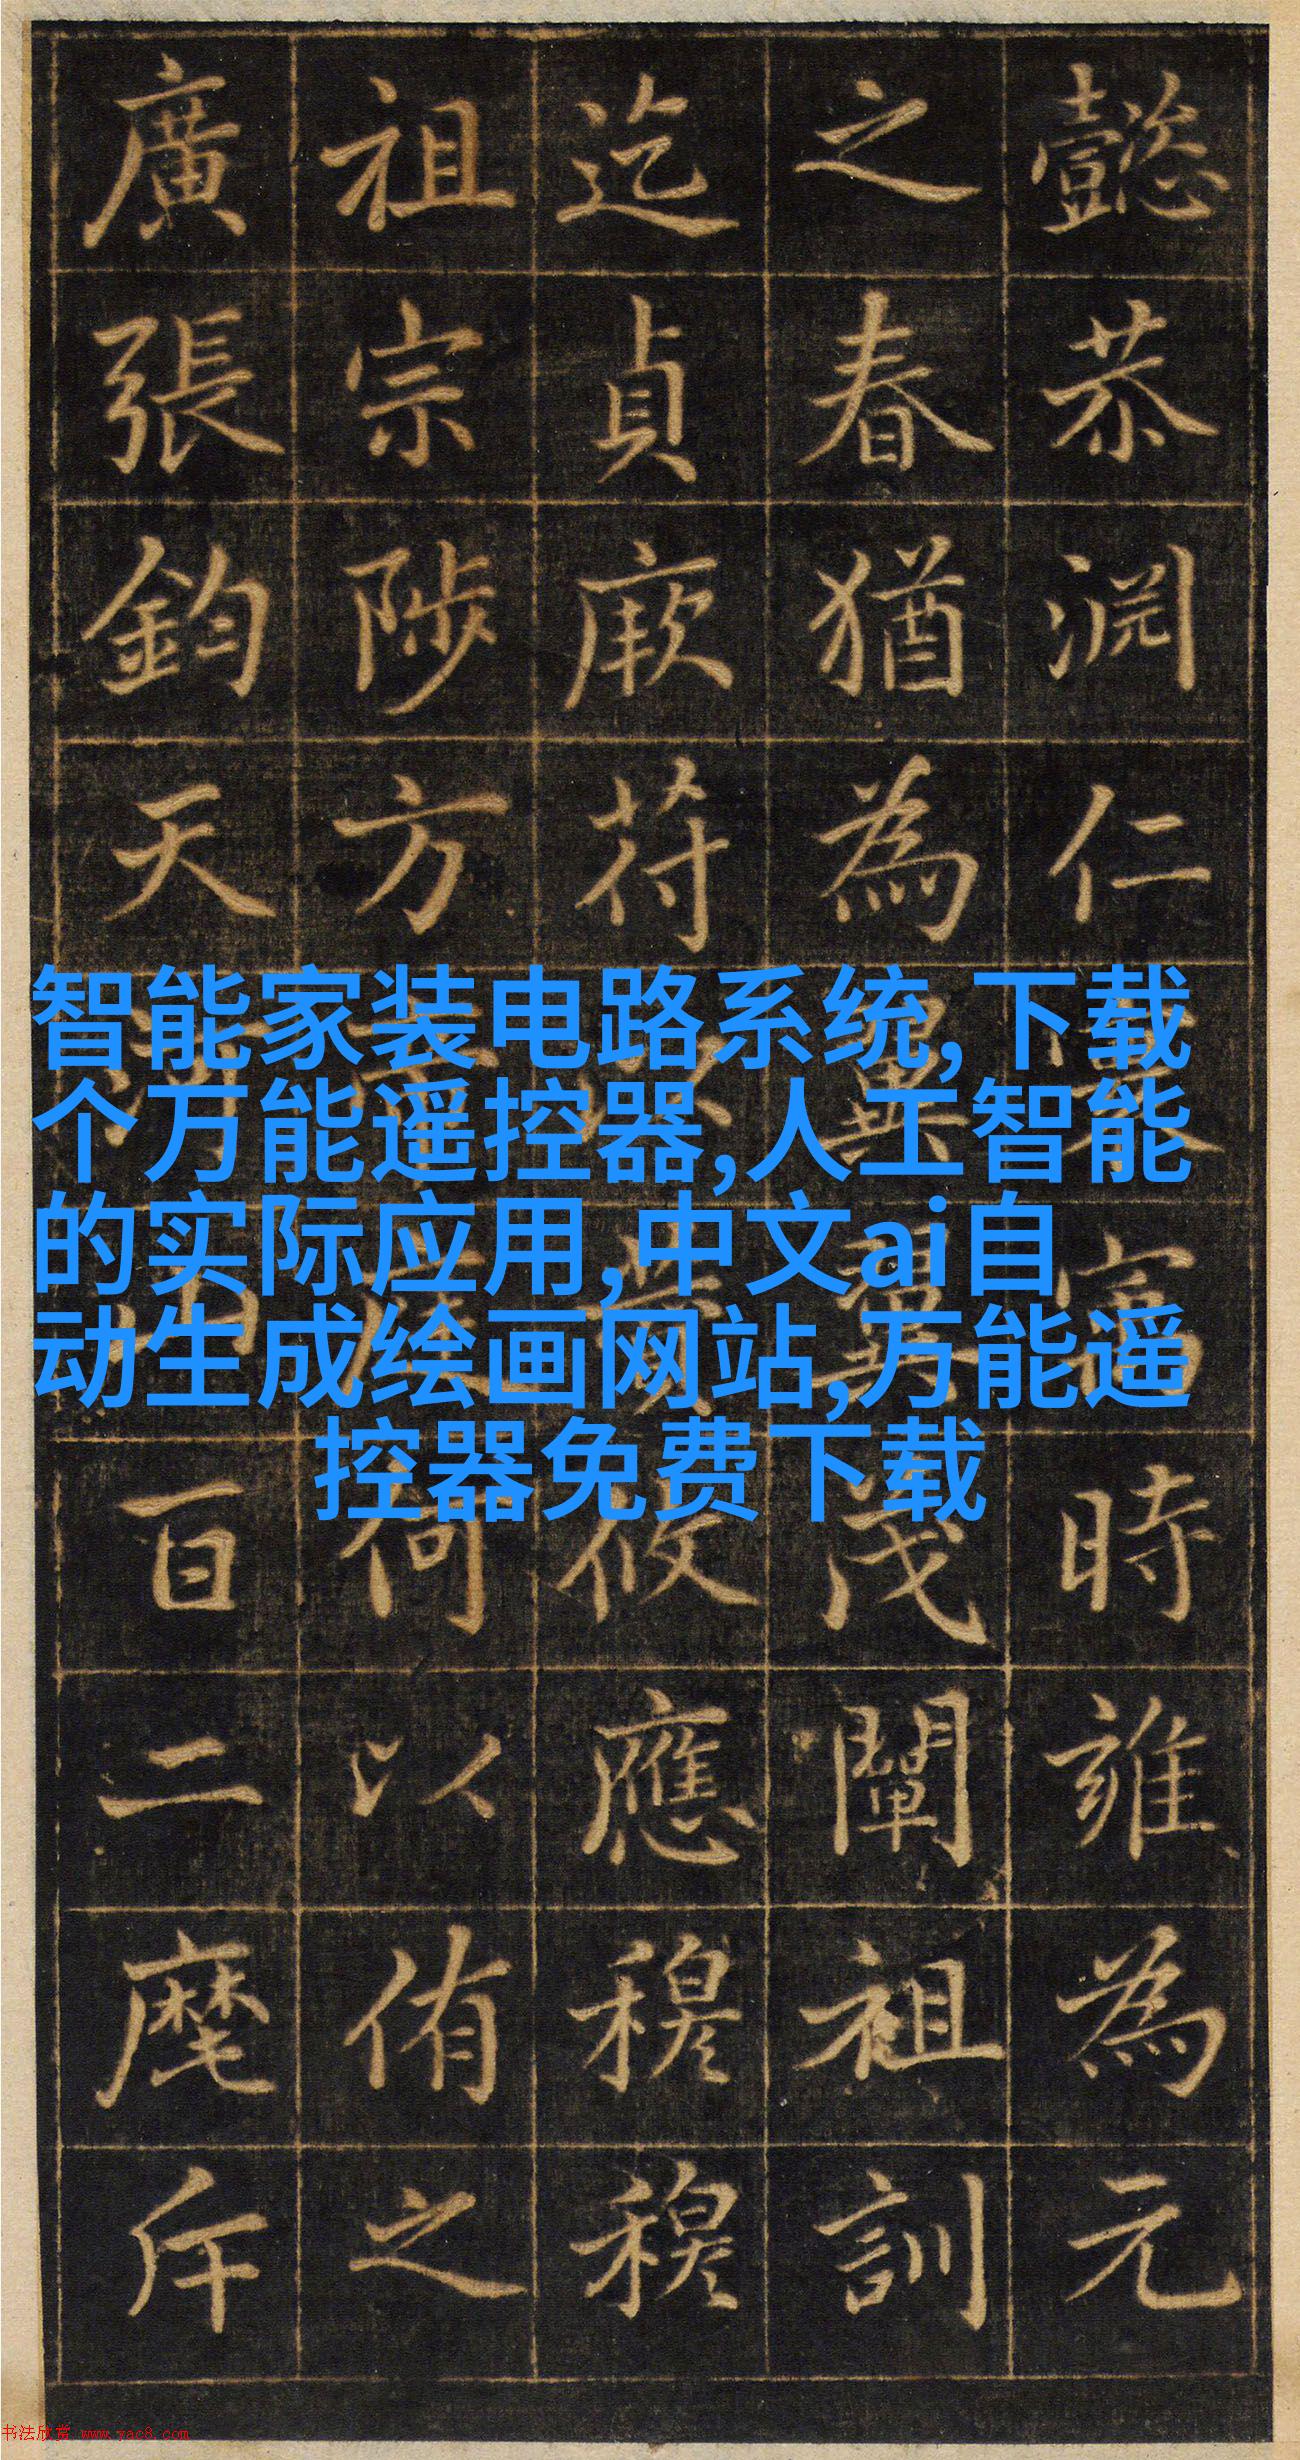 懿恭淵仁富時雍為元
之春猶為翼茂闡祖訓
迄貞厥符攸應穆穆
祖宗陟方何以侑之
廣張鈞天百二麾斥
智能家装电路系统,下载
个万能遥控器,人工智能
的实际应用,中文ai自
动生成绘画网站,万能遥
控器免费下载
书法欣赏 www.yac8.com